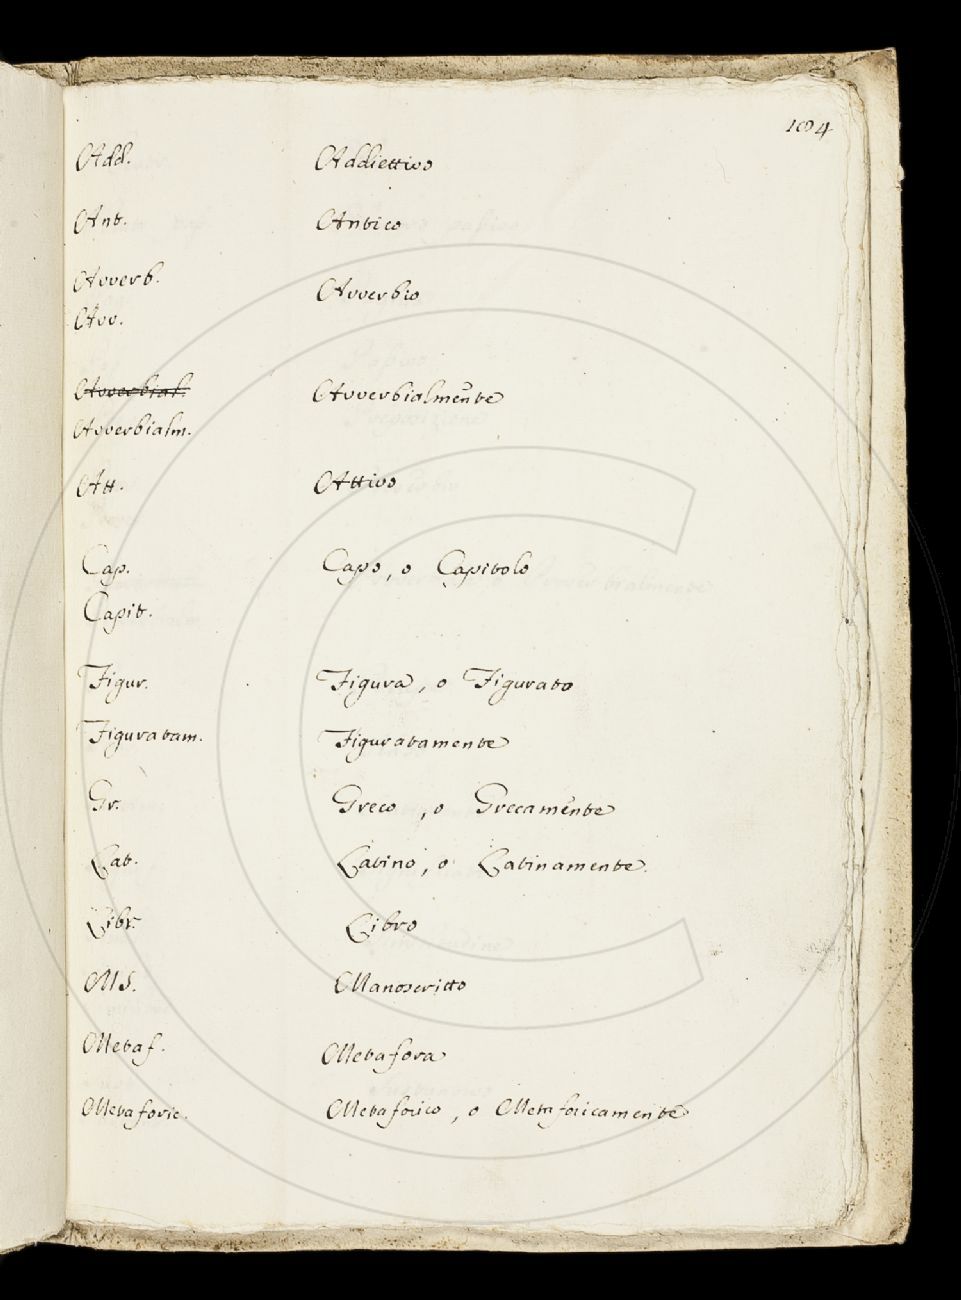 194
Add. Addiettivo
Ant. Antico
Avverb. Avverbio
Avv.
Avverbial. Avverbialmẽnte
Avverbialm.
Att. Attivo
Cap. Capo, o Capitolo
Capit.
Figur. Figura, o Figurato
Figuratam. Figuratamente
Gr. Greco, o Grecamẽnte
Lat. Latino, o Latinamente.
Libr. Libro
MS. Manoscritto
Metaf. Metafora
Metaforic. Metaforico, o Metaforicamente